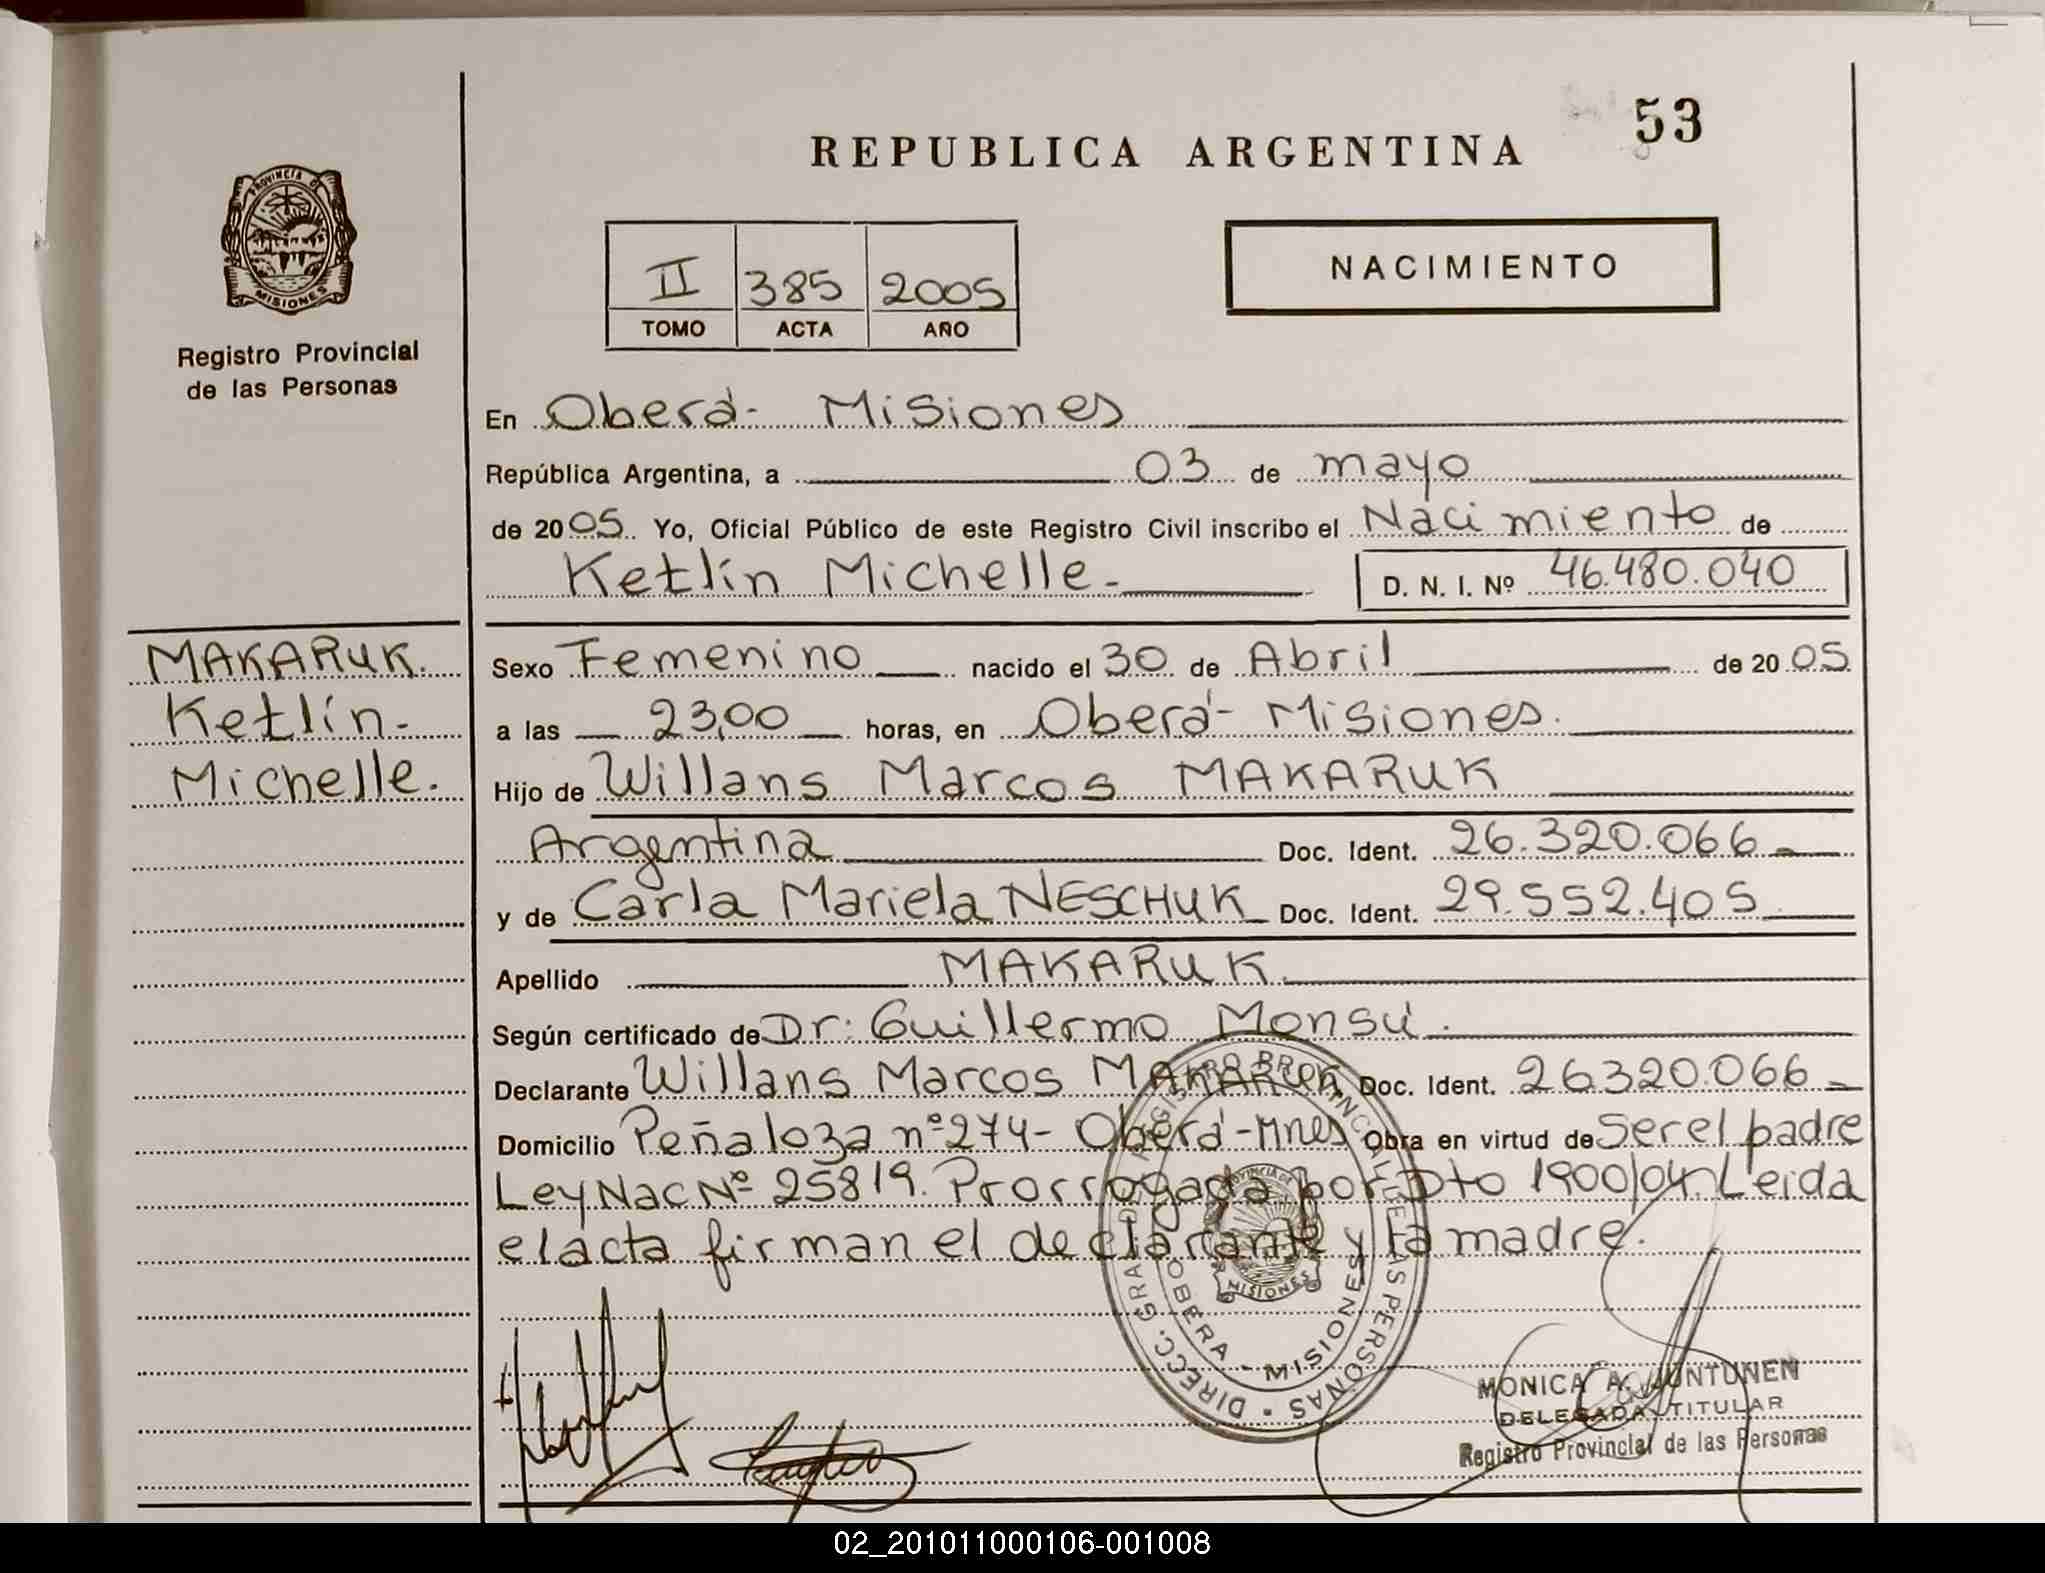 53
REPUBLICA ARGENTINA
PROVINCIA DE
MISIONES
Registro Provincial
de las Personas
II 385 2005
TOMO ACTA AÑO
NACIMIENTO
En Oberá- Misiones
República Argentina, a 03 de mayo
de 2005 Yo, Oficial Público de este Registro Civil inscribo el Nacimiento de
Ketlín Michelle- D. N. I. Nº 46.480.040
MAKARUK.
Ketlín-
Michelle.
Sexo Femenino nacido el 30 de Abril de 2005
a las 23,00 horas, en Oberá- Misiones.
Hijo de Willans Marcos MAKARUK
Argentina Doc. Ident. 26.320.066
y de Carla Mariela NESCHUK Doc. Ident. 29.552.405
Apellido MAKARUK.
Según certificado de Dr: Guillermo Monsú.
Declarante Willans Marcos MAKARUK Doc. Ident. 26320.066
Domicilio Peñaloza nº274- Oberá-Mnes Obra en virtud de Ser el padre
Ley Nac Nº 25819. Prorrogada por Dto 1900/04. Leida
el acta firman el declarante y la madre.
DIRECC. GRAL. DE REGISTRO PROVINCIAL DE LAS PERSONAS
PROVINCIA DE
MISIONES
OBERA - MISIONES
MONICA A. JUNTUNEN
DELEGADA TITULAR
Registro Provincial de las Personas
02_201011000106-001008